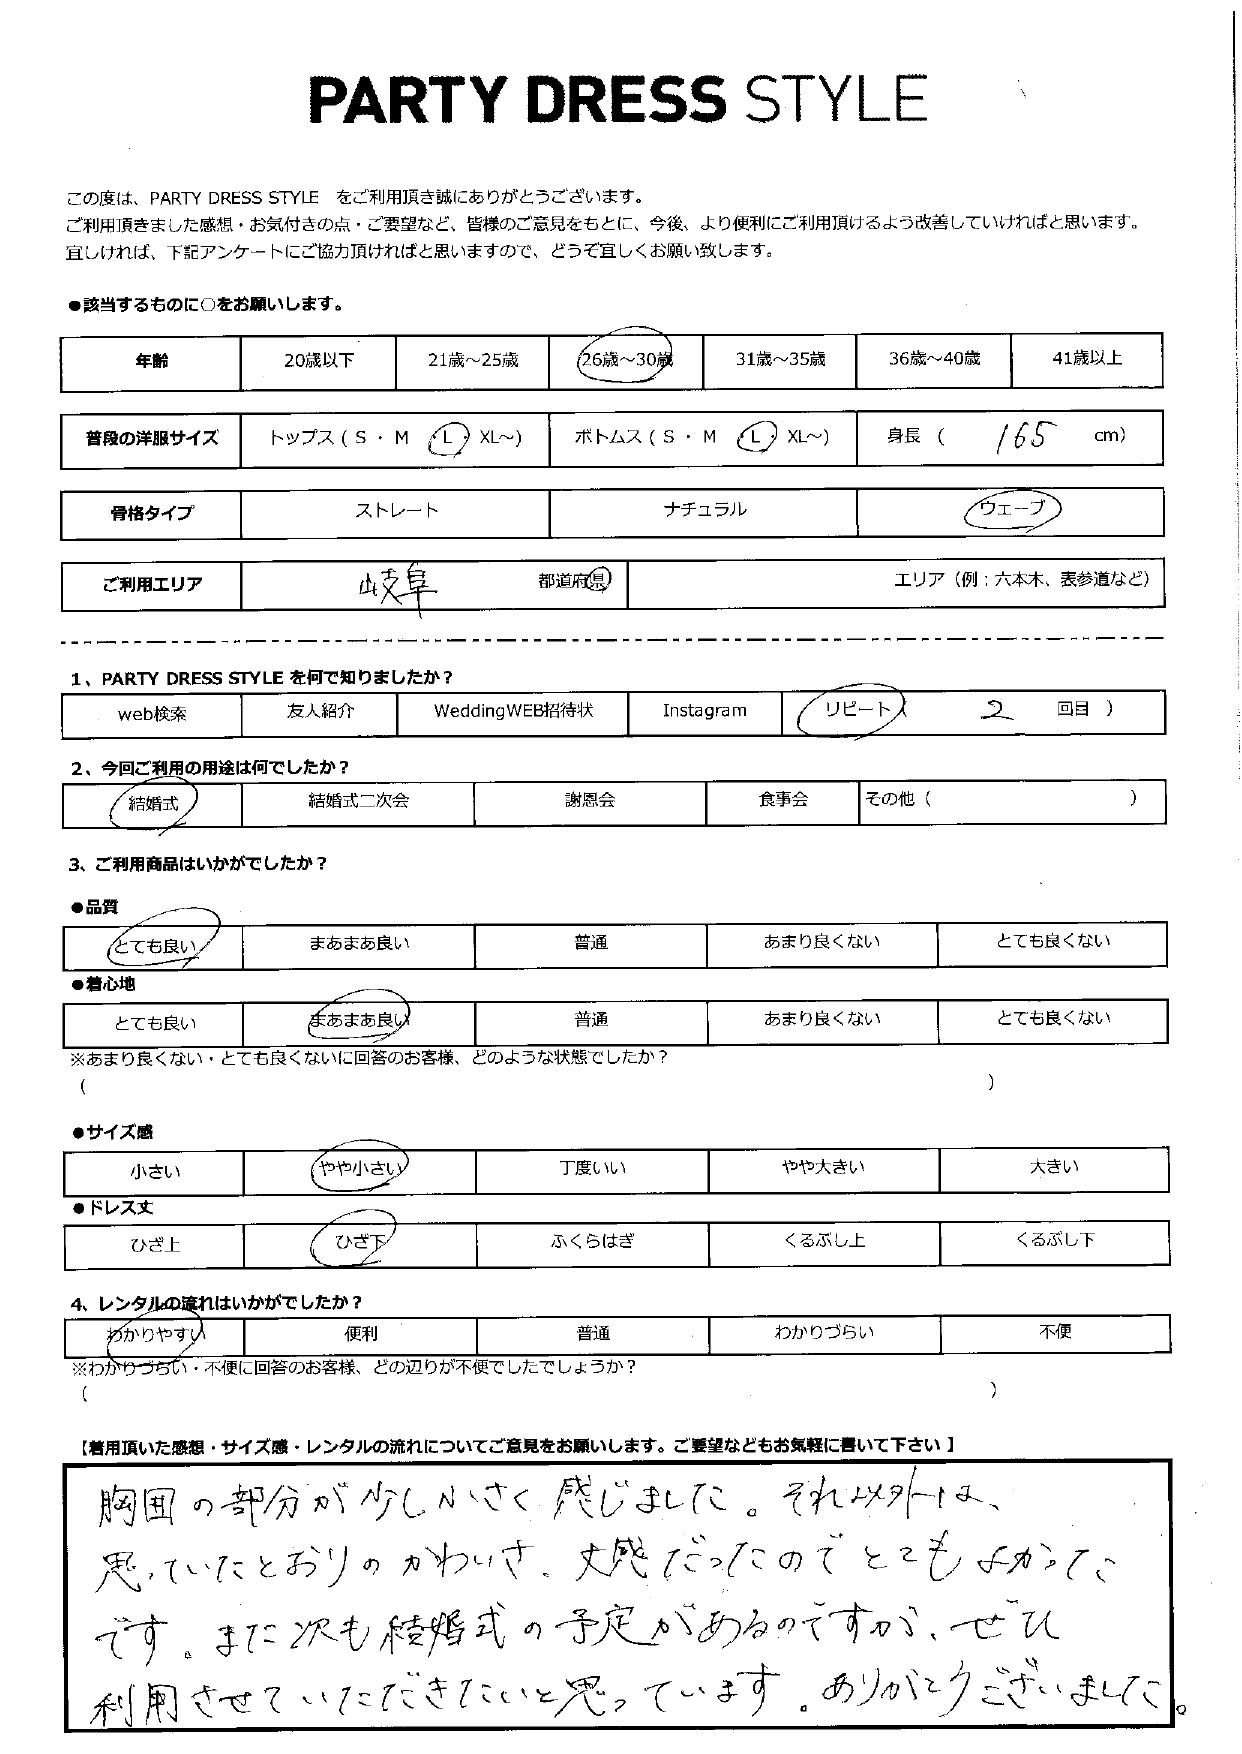 PARTY DRESS STYLE
この度は、PARTY DRESS STYLE をご利用頂き誠にありがとうございます。
ご利用頂きました感想・お気付きの点・ご要望など、皆様のご意見をもとに、今後、より便利にご利用頂けるよう改善していければと思います。
宜しければ、下記アンケートにご協力頂ければと思いますので、どうぞ宜しくお願い致します。
●該当するものに○をお願いします。
年齢 20歳以下 21歳～25歳 26歳～30歳 31歳～35歳 36歳～40歳 41歳以上
普段の洋服サイズ トップス ( S ・ M L XL～) ボトムス ( S ・ M L XL～) 身長 ( 165 cm)
骨格タイプ ストレート ナチュラル ウェーブ
ご利用エリア 岐阜 都道府県 エリア（例：六本木、表参道など）
1、PARTY DRESS STYLE を何で知りましたか？
web検索 友人紹介 WeddingWEB招待状 Instagram リピート ( 2 回目 )
2、今回ご利用の用途は何でしたか？
結婚式 結婚式二次会 謝恩会 食事会 その他 ( )
3、ご利用商品はいかがでしたか？
●品質
とても良い まあまあ良い 普通 あまり良くない とても良くない
●着心地
とても良い まあまあ良い 普通 あまり良くない とても良くない
※あまり良くない・とても良くないに回答のお客様、どのような状態でしたか？
( )
●サイズ感
小さい やや小さい 丁度いい やや大きい 大きい
●ドレス丈
ひざ上 ひざ下 ふくらはぎ くるぶし上 くるぶし下
4、レンタルの流れはいかがでしたか？
わかりやすい 便利 普通 わかりづらい 不便
※わかりづらい・不便に回答のお客様、どの辺りが不便でしたでしょうか？
( )
【着用頂いた感想・サイズ感・レンタルの流れについてご意見をお願いします。ご要望などもお気軽に書いて下さい】
胸囲の部分が少し小さく感じました。それ以外は、
思っていたとおりのかわいさ、丈感だったのでとてもよかった
です。また次も結婚式の予定があるのですが、ぜひ
利用させていただきたいと思っています。ありがとうございました。